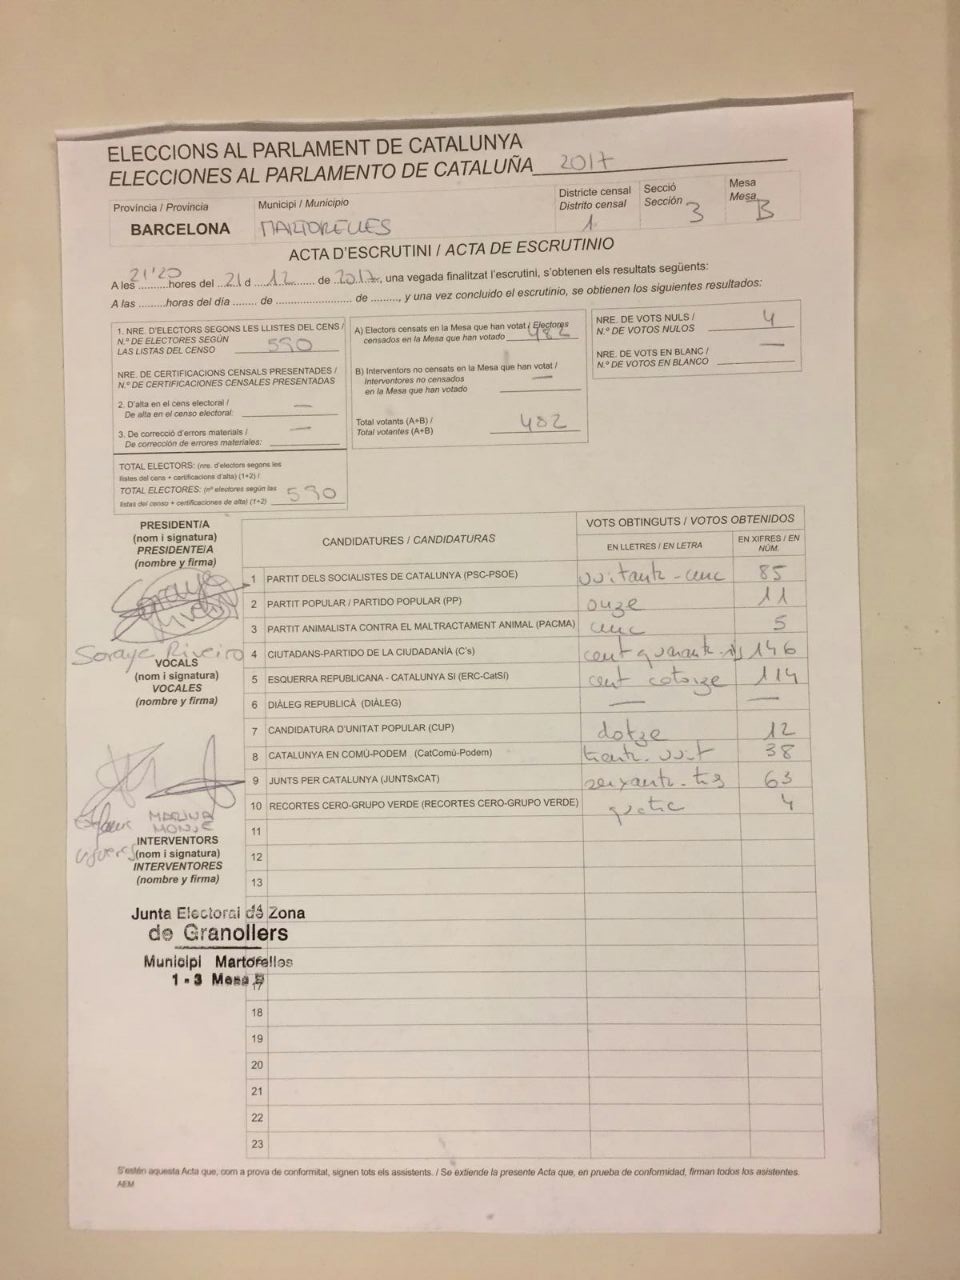 ELECCIONS AL PARLAMENT DE CATALUNYA
ELECCIONES AL PARLAMENTO DE CATALUÑA 2017
Província / Provincia
BARCELONA
Municipi / Municipio
MARTORELLES
Districte censal
Distrito censal
1
Secció
Sección
3
Mesa
Mesa
B
ACTA D'ESCRUTINI / ACTA DE ESCRUTINIO
A les 21'20 hores del 21 d 12 de 2017, una vegada finalitzat l'escrutini, s'obtenen els resultats següents:
A las .........horas del día ....... de ....................... de ........, y una vez concluido el escrutinio, se obtienen los siguientes resultados:
1. NRE. D'ELECTORS SEGONS LES LLISTES DEL CENS /
N.º DE ELECTORES SEGÚN
LAS LISTAS DEL CENSO 590
NRE. DE CERTIFICACIONS CENSALS PRESENTADES /
N.º DE CERTIFICACIONES CENSALES PRESENTADAS
2. D'alta en el cens electoral /
De alta en el censo electoral: —
3. De correcció d'errors materials /
De corrección de errores materiales: —
TOTAL ELECTORS: (nre. d'electors segons les
llistes del cens + certificacions d'alta) (1+2) /
TOTAL ELECTORES: (nº electores según las
listas del censo + certificaciones de alta) (1+2) 590
A) Electors censats en la Mesa que han votat / Electores
censados en la Mesa que han votado 482
B) Interventors no censats en la Mesa que han votat /
Interventores no censados
en la Mesa que han votado —
Total votants (A+B) /
Total votantes (A+B) 482
NRE. DE VOTS NULS /
N.º DE VOTOS NULOS 4
NRE. DE VOTS EN BLANC /
N.º DE VOTOS EN BLANCO —
PRESIDENT/A
(nom i signatura)
PRESIDENTE/A
(nombre y firma)
Soraya Riveiro
VOCALS
(nom i signatura)
VOCALES
(nombre y firma)
MARINA
MONJE
INTERVENTORS
(nom i signatura)
INTERVENTORES
(nombre y firma)
Junta Electoral de Zona
de Granollers
Municipi Martorelles
1 - 3 Mesa B
CANDIDATURES / CANDIDATURAS
VOTS OBTINGUTS / VOTOS OBTENIDOS
EN LLETRES / EN LETRA
EN XIFRES / EN NÚM.
1 PARTIT DELS SOCIALISTES DE CATALUNYA (PSC-PSOE) vuitanta-cinc 85
2 PARTIT POPULAR / PARTIDO POPULAR (PP) onze 11
3 PARTIT ANIMALISTA CONTRA EL MALTRACTAMENT ANIMAL (PACMA) cinc 5
4 CIUTADANS-PARTIDO DE LA CIUDADANÍA (C's) cent quaranta-sis 146
5 ESQUERRA REPUBLICANA - CATALUNYA SI (ERC-CatSí) cent catorze 114
6 DIÀLEG REPUBLICÀ (DIÀLEG) — —
7 CANDIDATURA D'UNITAT POPULAR (CUP) dotze 12
8 CATALUNYA EN COMÚ-PODEM (CatComú-Podem) trenta-vuit 38
9 JUNTS PER CATALUNYA (JUNTSxCAT) seixanta-tres 63
10 RECORTES CERO-GRUPO VERDE (RECORTES CERO-GRUPO VERDE) quatre 4
11
12
13
14
17
18
19
20
21
22
23
S'estén aquesta Acta que, com a prova de conformitat, signen tots els assistents. / Se extiende la presente Acta que, en prueba de conformidad, firman todos los asistentes.
AEM